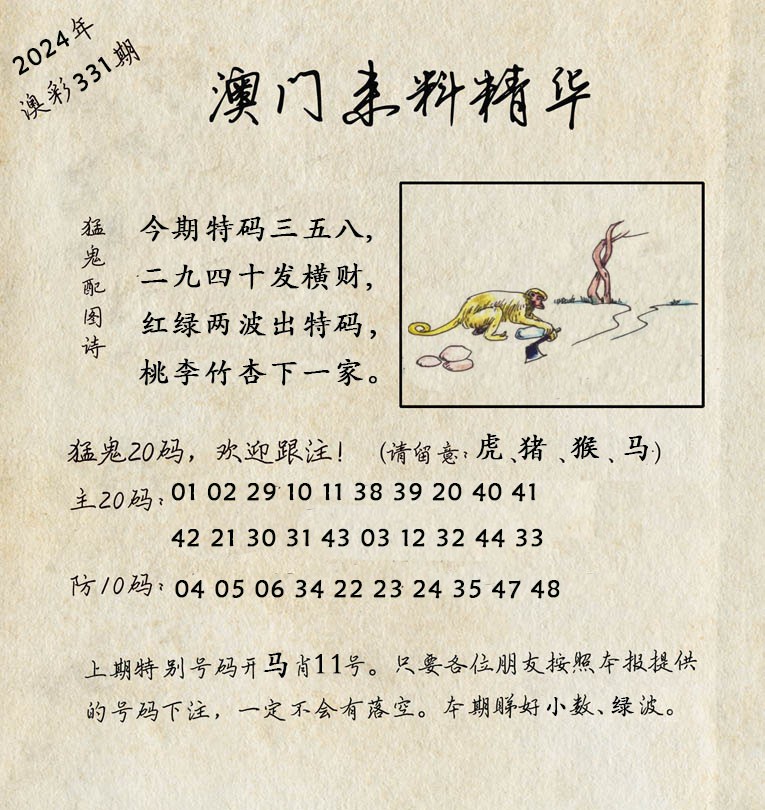 2024年
澳彩331期
澳门来料精华
猛鬼配图诗
今期特码三五八,
二九四十发横财,
红绿两波出特码,
桃李竹杏下一家。
猛鬼20码，欢迎跟注！（请留意:虎、猪、猴、马）
主20码: 01 02 29 10 11 38 39 20 40 41
42 21 30 31 43 03 12 32 44 33
防10码: 04 05 06 34 22 23 24 35 47 48
上期特别号码开马肖11号。只要各位朋友按照本报提供
的号码下注，一定不会有落空。本期睇好小数、绿波。